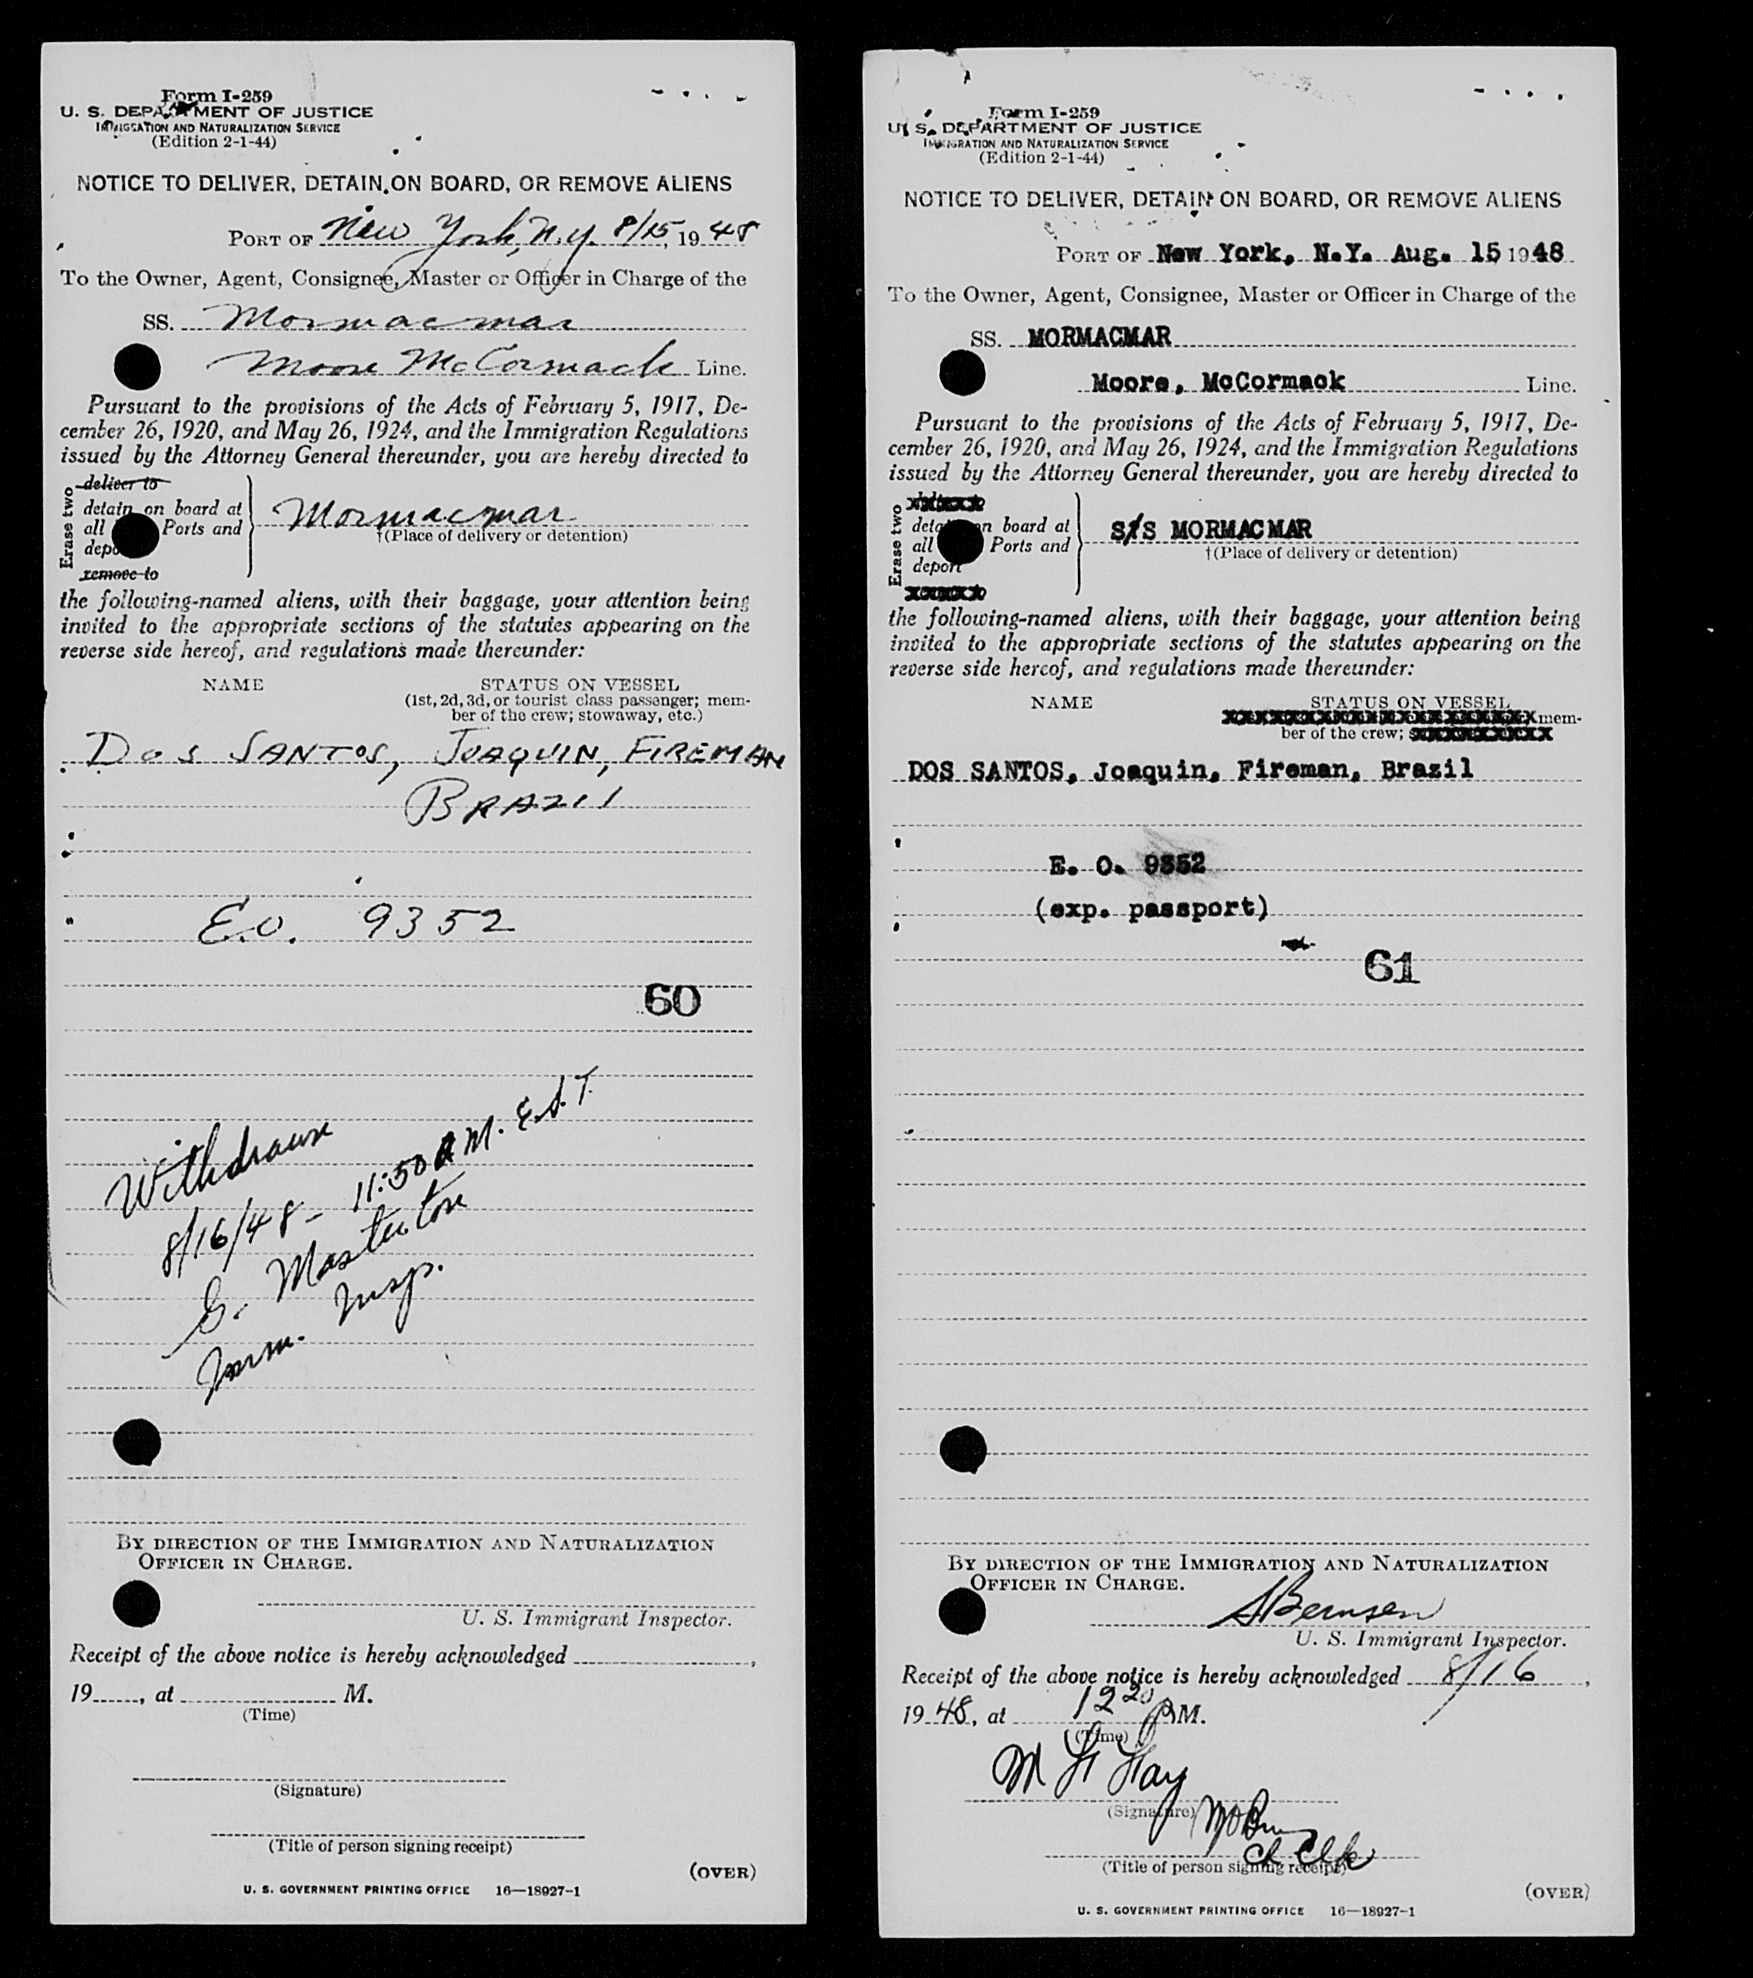 Form I-259
U. S. DEPARTMENT OF JUSTICE
IMMIGRATION AND NATURALIZATION SERVICE
(Edition 2-1-44)
NOTICE TO DELIVER, DETAIN ON BOARD, OR REMOVE ALIENS
PORT OF New York, N.Y. 8/15, 1948
To the Owner, Agent, Consignee, Master or Officer in Charge of the
SS. Mormacmar
Moore McCormack Line.
Pursuant to the provisions of the Acts of February 5, 1917, De-
cember 26, 1920, and May 26, 1924, and the Immigration Regulations
issued by the Attorney General thereunder, you are hereby directed to
Erase two
deliver to
detain on board at
all Ports and
depo
remove to
Mormacmar
†(Place of delivery or detention)
the following-named aliens, with their baggage, your attention being
invited to the appropriate sections of the statutes appearing on the
reverse side hereof, and regulations made thereunder:
NAME STATUS ON VESSEL
(1st, 2d, 3d, or tourist class passenger; mem-
ber of the crew; stowaway, etc.)
DOS SANTOS, JOAQUIN, FIREMAN
BRAZIL
E.O. 9352
60
Withdrawn
8/16/48 - 11:50 A M. E.S.T.
G. Masterton
Imm. Insp.
BY DIRECTION OF THE IMMIGRATION AND NATURALIZATION
OFFICER IN CHARGE.
U. S. Immigrant Inspector.
Receipt of the above notice is hereby acknowledged ,
19 , at M.
(Time)
(Signature)
(Title of person signing receipt)
(OVER)
U. S. GOVERNMENT PRINTING OFFICE 16—18927-1
Form I-259
U. S. DEPARTMENT OF JUSTICE
IMMIGRATION AND NATURALIZATION SERVICE
(Edition 2-1-44)
NOTICE TO DELIVER, DETAIN ON BOARD, OR REMOVE ALIENS
PORT OF New York, N.Y. Aug. 15, 1948
To the Owner, Agent, Consignee, Master or Officer in Charge of the
SS. MORMACMAR
Moore, McCormack Line.
Pursuant to the provisions of the Acts of February 5, 1917, De-
cember 26, 1920, and May 26, 1924, and the Immigration Regulations
issued by the Attorney General thereunder, you are hereby directed to
Erase two
detain on board at
all Ports and
deport
S/S MORMACMAR
†(Place of delivery or detention)
the following-named aliens, with their baggage, your attention being
invited to the appropriate sections of the statutes appearing on the
reverse side hereof, and regulations made thereunder:
NAME STATUS ON VESSEL
mem-
ber of the crew;
DOS SANTOS, Joaquin, Fireman, Brazil
E. O. 9352
(exp. passport)
61
BY DIRECTION OF THE IMMIGRATION AND NATURALIZATION
OFFICER IN CHARGE.
S Bernsen
U. S. Immigrant Inspector.
Receipt of the above notice is hereby acknowledged 8/16,
1948, at 12 20 P M.
(Time)
M
(Signature)
(Title of person signing receipt)
(OVER)
U. S. GOVERNMENT PRINTING OFFICE 16—18927-1